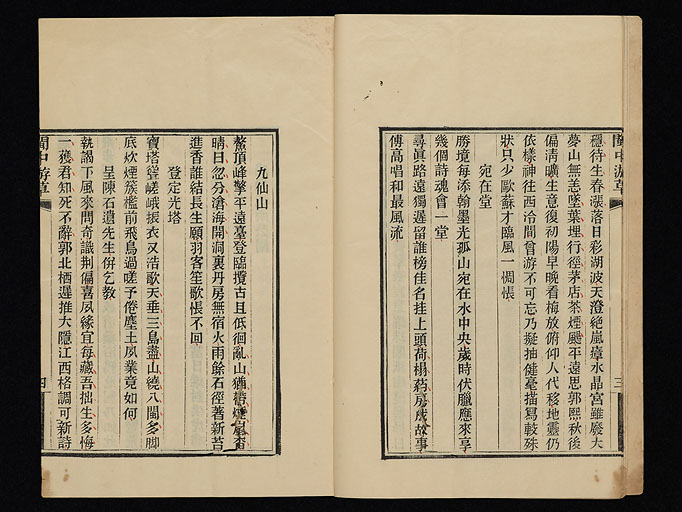 穩待生春漲落日彩湖波天澄絕嵐瘴水晶宮雖廢大
夢山無恙墜葉埋行徑茅店茶煙颺平遠思郭熙秋後
偏淸曠生意復初陽早晚看梅放俯仰人代移地靈仍
依樣神往西泠間曾游不可忘乃擬抽健毫描寫較殊
狀只少歐蘇才臨風一惆悵
宛在堂
勝境每添翰墨光孤山宛在水中央歲時伏臘應來享
幾個詩魂會一堂
尋眞路遠獨遲留誰榜佳名挂上頭荷榻藥房成故事
傅高唱和最風流
閩中游草
三
九仙山
鰲頂峰擎平遠臺登臨攬古且低徊亂山猶帶煙嵐杳
晴日忽分滄海開洞裏丹房無宿火雨餘石徑著新苔
進香誰結長生願羽客笙歌悵不回
登定光塔
寶塔徑嵯峨振衣又浩歌天垂三島盡山繞八閩多脚
底炊煙簇檻前飛鳥過嗟予倦塵土夙業竟如何
呈陳石遺先生倂乞教
執謁下風來問奇識荆偏喜夙緣宜每藏吾拙生多悔
一獲君知死不辭郭北栖遲推大隱江西格調可新詩
閩中游草
四